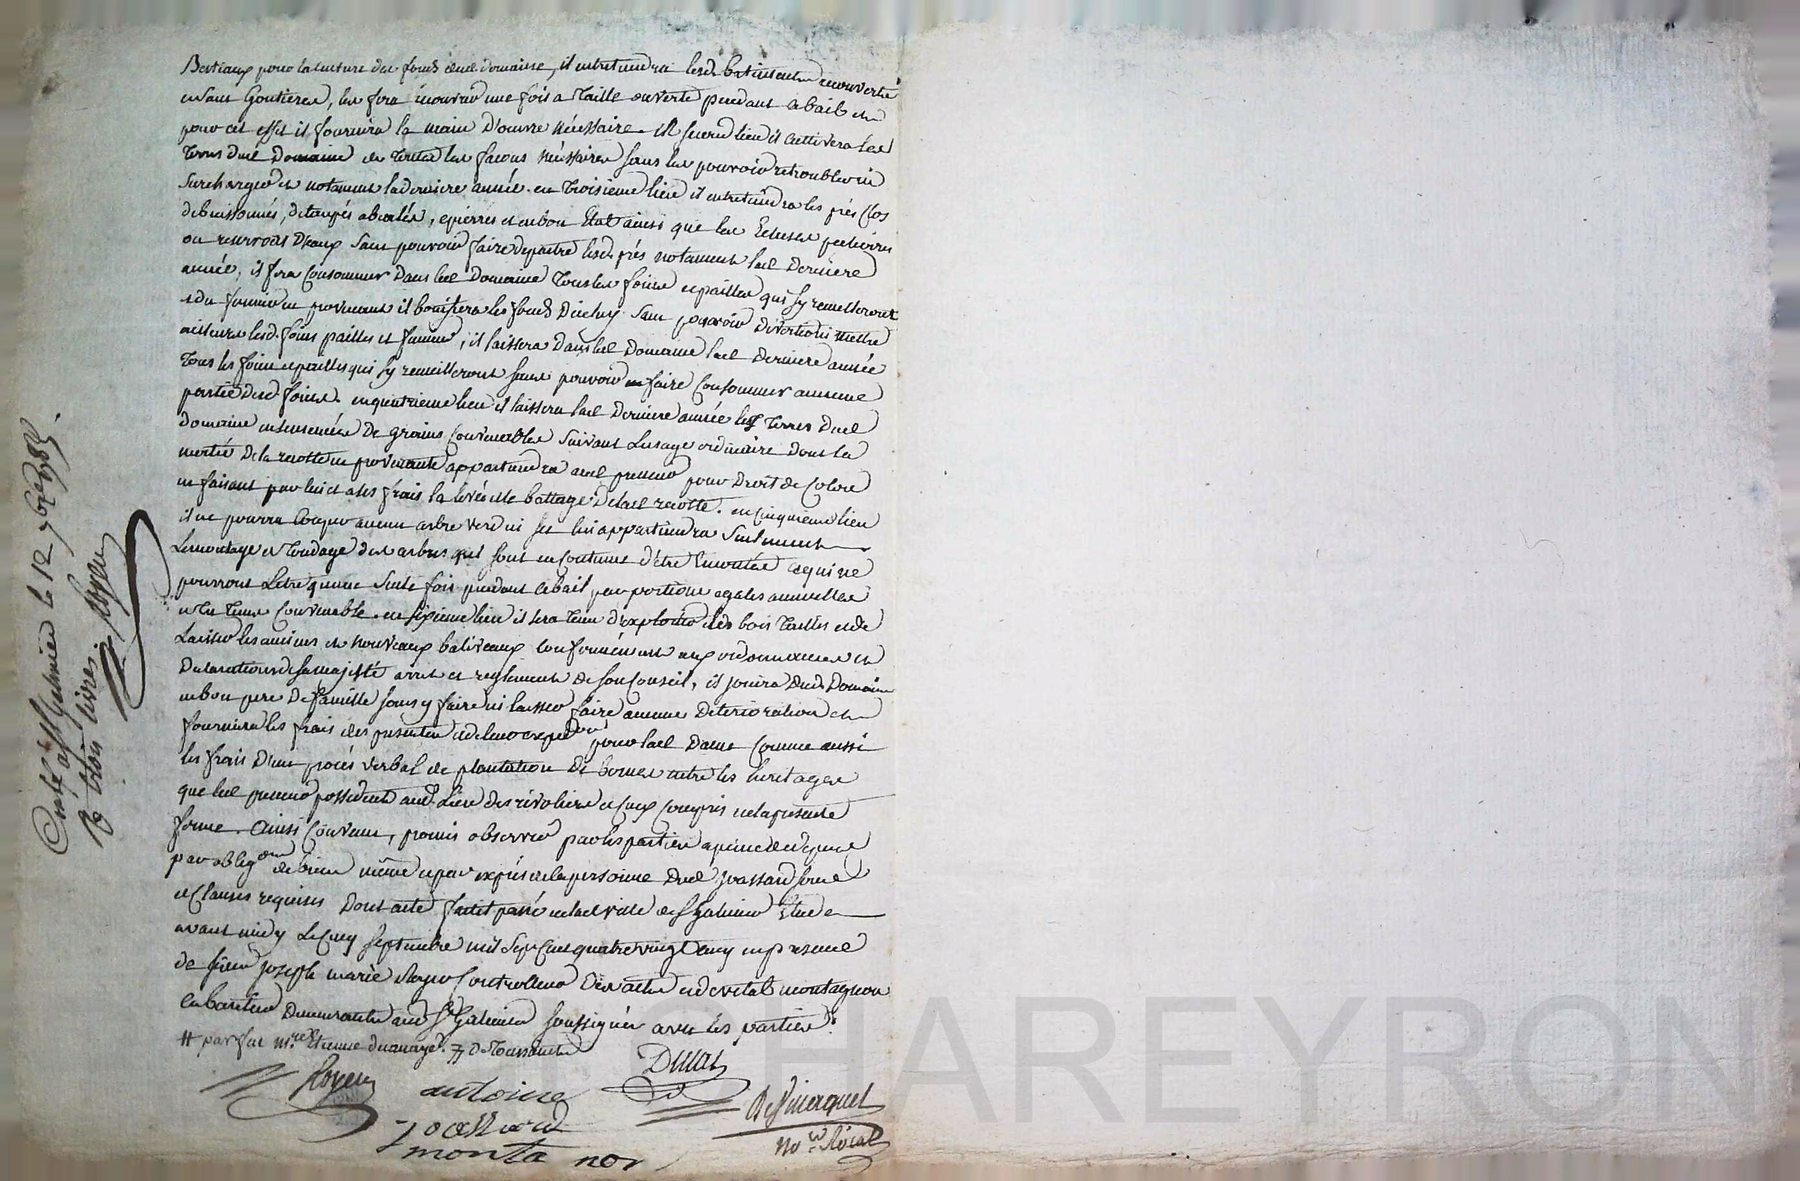 Bestiaux pour la culture des fonds dud. domaine, il entretiendra lesd. batiments en couverts
et sans Goutieres, les fera recouvrir une fois a Taille ouverte pendant ce bail et
pour cet effet il fournira la main d'œuvre nécessaire. En second lieu il cultivera les
Terres dud. Domaine de toutes les façons nécessaires sans les pouvoir retroubler ni
Surcharger et notament la derniere année. en Troisieme lieu il entretiendra les prés Clos
debuissonnés, détaupés, epierrés et en bon Etat ainsi que les Ecluses
ou reservoirs d'eaux Sans pouvoir faire depaitre lesd. prés notament lad. Derniere
année, il fera Consommer Dans led. Domaine Tous les foins et pailles qui s'y recueilleront
et du fumier en provenant il bonifiera les fonds D'icelui Sans pouvoir divertir ni mettre
ailleurs lesd. foins pailles et fumier, il laissera Dans led. Domaine lad. Derniere année
Tous les foins et pailles qui s'y recueilleront sans pouvoir en faire Consommer aucune
partie desd. foins. en quatrieme lieu il laissera lad. Derniere année les Terres dud.
domaine ensemencées De grains Convenables Suivant L'usage ordinaire Dont la
moitié De la recolte en provenante appartiendra aud. preneur pour Droit de Colon
en faisant par lui et a ses frais la levée et le battage De lad. recolte. en Cinquieme lieu
il ne pourra Couper aucun arbre verd ni sec lui appartiendra Seulement
L'emontage et Tondage des arbres qui sont en Coutume d'être Emontés et qui ne
pourront L'etre qu'une Seule fois pendant ce bail par portions egales annuelles
et en Tems Convenable. en Sixieme lieu il sera Tenu d'exploiter les bois Taillis et de
Laisser les anciens et nouveaux baliveaux Conformément aux ordonnances et
Declarations de sa majesté arrets et reglements de son Conseil, il jouira dud. Domaine
en bon pere De famille sans y faire ni laisser faire aucune Deterioration et
fournira les frais des presentes et de leur expedon pour lad. Dame Comme aussi
les frais D'un procés verbal de plantation De bornes entre les heritages
que led. preneur possedent aud. Lieu des révoliers et Ceux Compris en la presente
ferme. Ainsi Convenu, promis observer par les parties a peine de depens
par obligon de biens même et par exprés de la personne Dud. Joassard
et Clauses requises Dont acte fait et passé en lad. ville de St Galmier Etude
avant midy Le Cinq Septembre mil Sept Cent quatre vingt Cinq en presence
de sieur Joseph marie Royer Controlleur Des actes et de vital montagnon
Cabaretier Demeurants aud. St Galmier soussignés avec les parties.
# par fut mre Etienne
Royer antoine Dulac
joassard
montanon
Not. Roial
Controllé a St Galmier le 12 7bre 1785.
R. trois livres. Royer
CHAREYRON